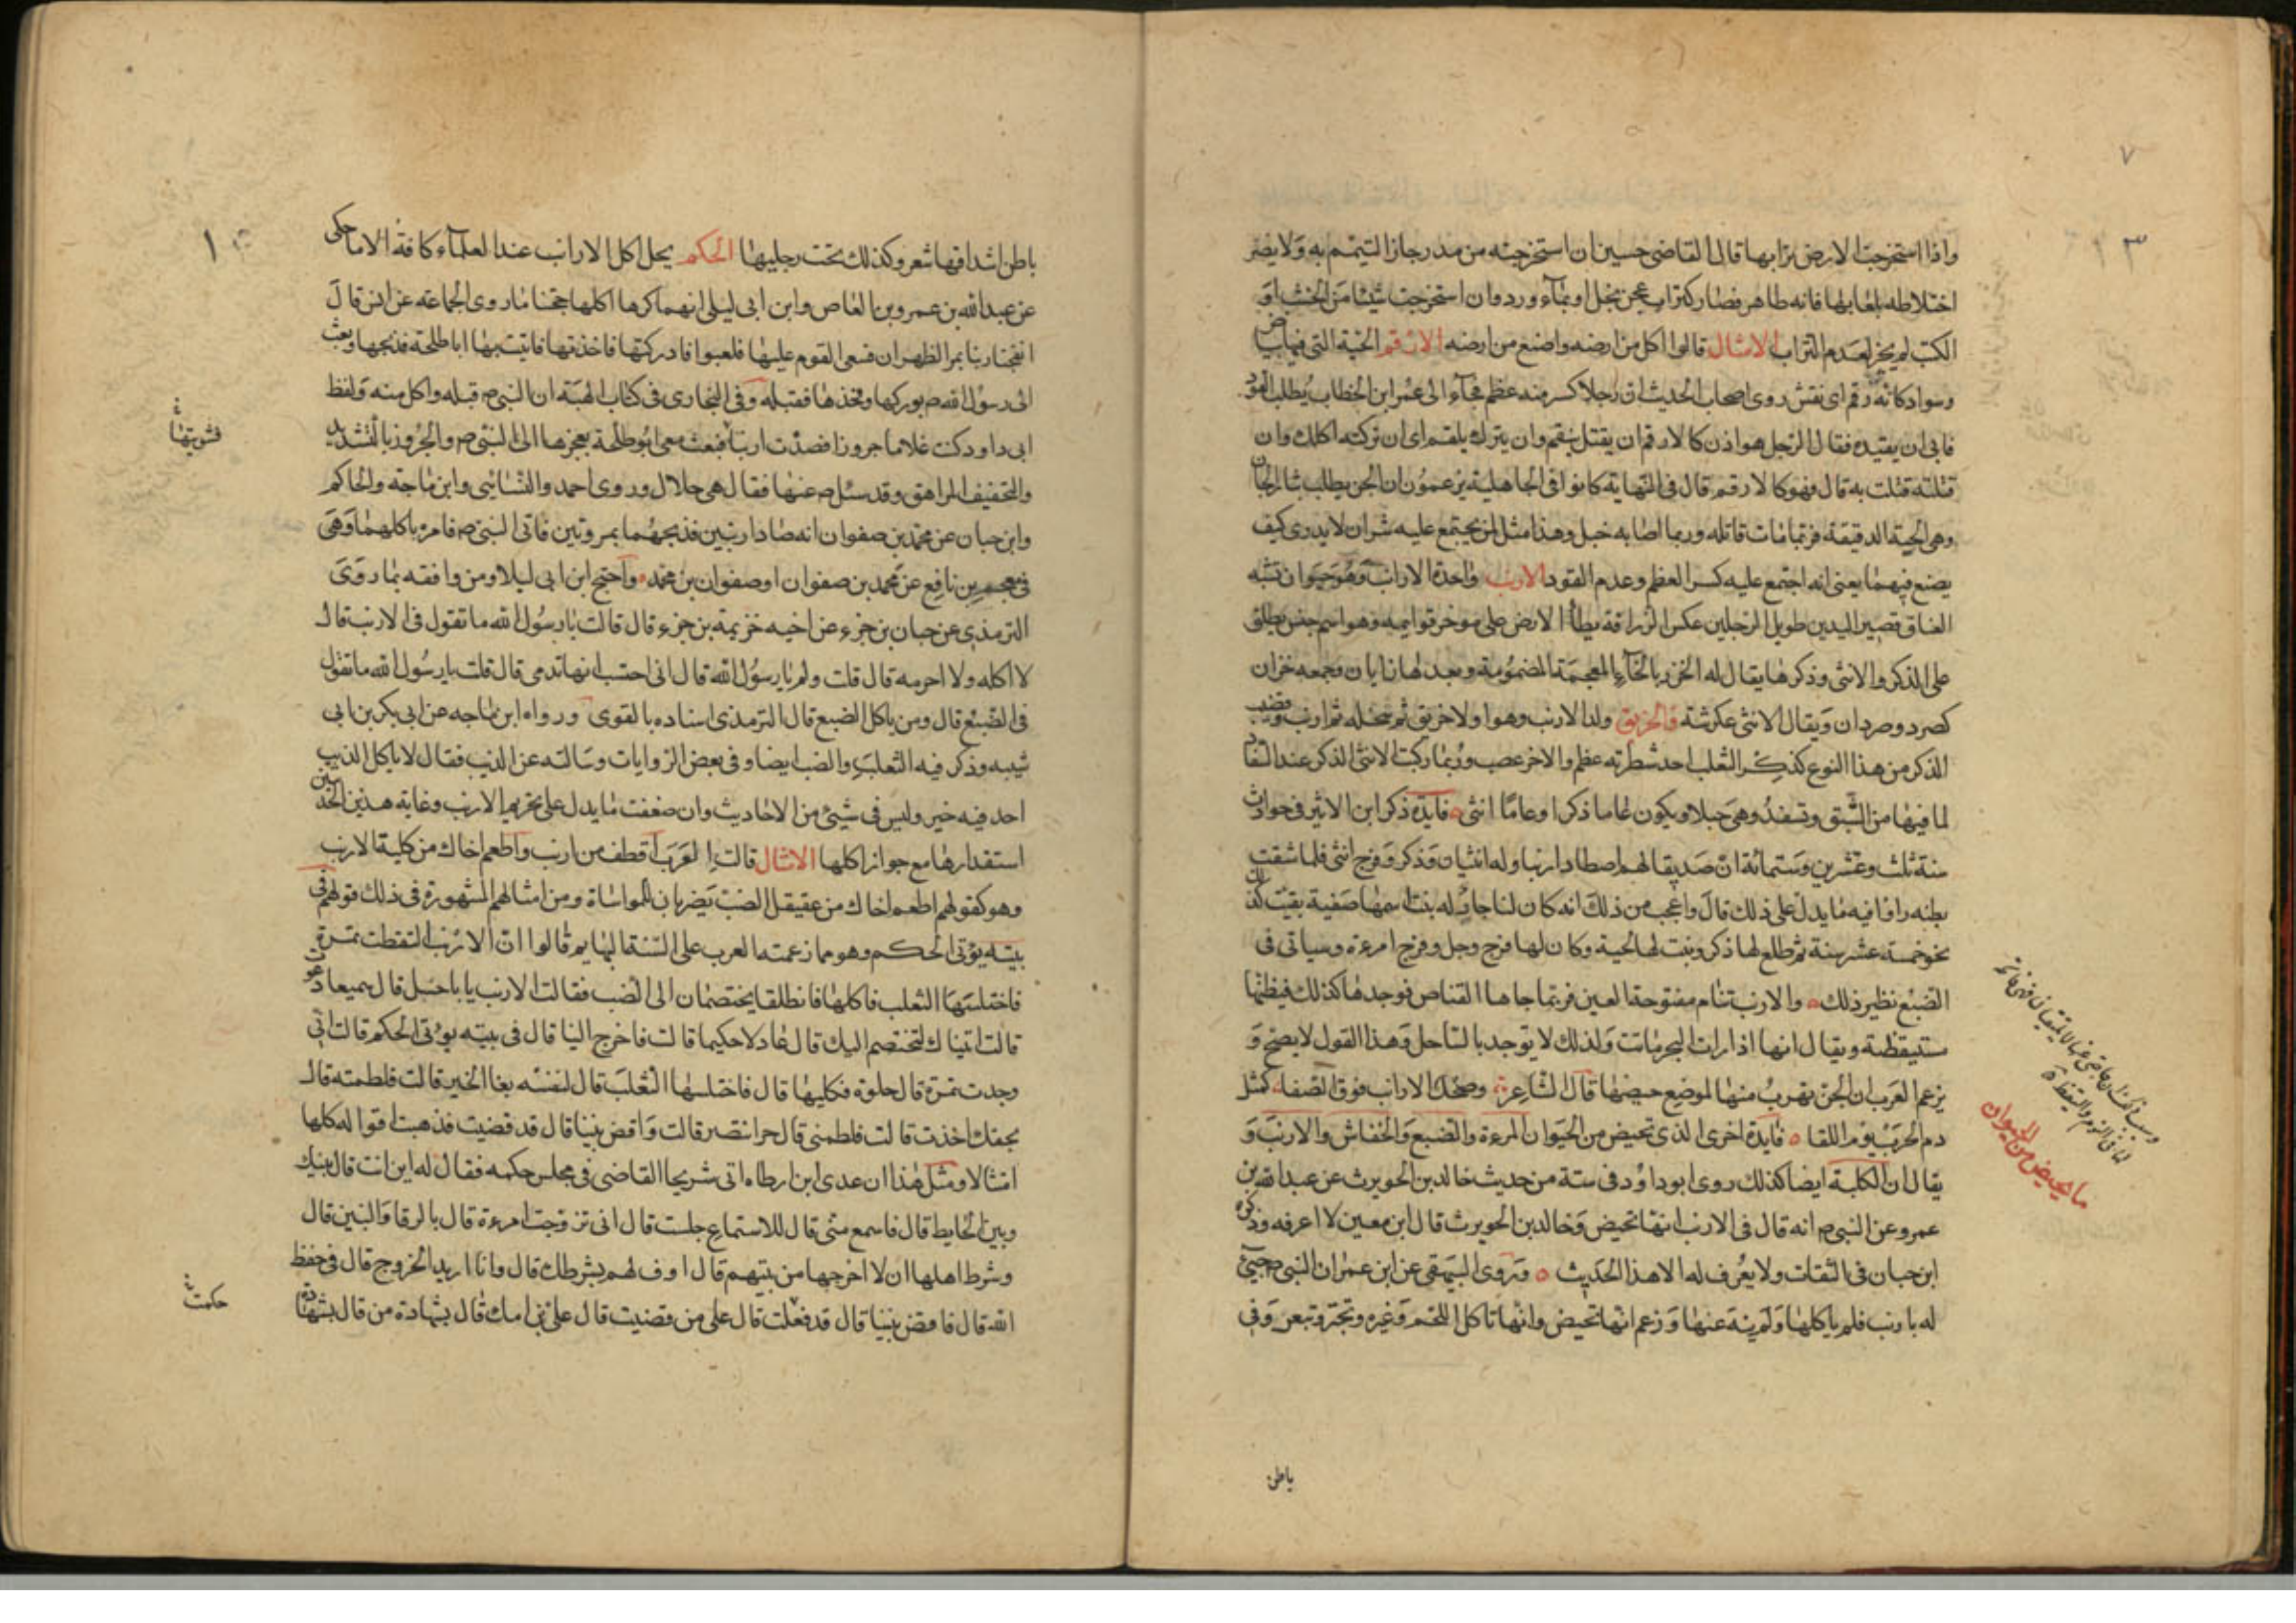 ٧
١٣
واذا استخرجت الارض ترابها قال القاضى حسين ان استخرجته من مدر جاز التيمم به ولا يضر
اختلاطه بلعابها فانه طاهر فصار كتراب عجن بخل او بماء ورد وان استخرجت شيئا من الخشب او
الكتب لم يجز لعدم التراب الامثال قالوا اكل من ارضه واضع من ارضه الارقم الحية التى فيها بياض
وسواد كانه رقم اى نقش روى اصحاب الحديث ان رجلا كسر منه عظم فجاء الى عمر ابن الخطاب يطلب القود
فابى ان يقيده فقال الرجل هو اذن كالارقم ان يقتل ينقم وان يترك يلقم اى ان تركته اكلك وان
قتلته قتلت به قال فهو كالارقم قال فى النهاية كانوا فى الجاهلية يزعمون ان الجن يطلب بثار الجان
وهى الحية الدقيقة فربما مات قاتله وربما اصابه خبل وهذا مثل لمن يجتمع عليه شران لا يدرى كيف
يصنع فيهما يعنى انه اجتمع عليه كسر العظم وعدم القود الارنب واحدة الارانب وهو حيوان يشبه
العناق قصير اليدين طويل الرجلين عكس الزرافة يطأ الارض على موخر قوايمه وهو اسم جنس يطلق
على الذكر والانثى وذكرها يقال له الخزز بالخاء المعجمة المضمومة وبعدها زايان وجمعه خزان
كصرد وصردان ويقال الانثى عكرشة فالخرنق ولد الارنب وهو اولا خرنق ثم سخله ثم ارنب وقضيب
الذكر من هذا النوع كذكر الثعلب احد شطريه عظم والاخر عصب وربما ركبت الانثى الذكر عند السفاد
لما فيها من الشبق وتسفد وهى حبلا ويكون عاما ذكرا وعاما انثى فايدة ذكر ابن الاثير فى حوادث
سنة ثلث وعشرين وستمائة ان صديقا لهم اصطاد ارنبا وله انثيان وذكر وفرج انثى فلما شقت
بطنه راوا فيه ما يدل على ذلك قال واعجب من ذلك انه كان لنا جار له بنت اسمها صفية بقيت كذلك
نحو خمسة عشر سنة ثم طلع لها ذكر ونبت لها لحية وكان لها فرج رجل وفرج امرءة وسياتى فى
الضبع نظير ذلك والارنب تنام مفتوحة العين فربما جاها القناص فوجدها كذلك فيظنها
مستيقظة ويقال انها اذا رات البحر ماتت ولذلك لا توجد بالساحل وهذا القول لا يصح و
يزعم العرب ان الجن تهرب منها لموضع حيضها قال الشاعر وضحك الارانب فوق الصفا كمثل
دم الحرب يوم اللقا فايدة اخرى الذى تحيض من الحيوان المرءة والضبع والخفاش والارنب و
يقال ان الكلبة ايضا كذلك روى ابو داود فى سننه من حديث خالد بن الحويرث عن عبد الله بن
عمرو عن النبى ص انه قال فى الارنب انها تحيض وخالد بن الحويرث قال ابن معين لا اعرفه وذكره
ابن حبان فى الثقات ولا يعرف له الا هذا الحديث وروى البيهقى عن ابن عمر ان النبى ص جئ
له بارنب فلم ياكلها ولم ينه عنها وزعم انها تحيض وانها تاكل اللحم وغيره وتجتر وتبعر وفى
ما يحيض من الحيوان
باطن
باطن اشداقها شعر وكذلك تحت رجليها الحكم يحل اكل الارانب عند العلماء كافة الا ما حكى
عن عبد الله بن عمرو بن العاص وابن ابى ليلى انهما كرها اكلها حجتنا ما روى الجماعة عن انس قال
انفجنا ارنبا بمر الظهران فسعى القوم عليها فلغبوا فادركتها فاخذتها فاتيت بها ابا طلحة فذبحها وبعث
الى رسول الله ص بوركها وفخذها فقبله وفى البخارى فى كتاب الهبة ان النبى ص قبله واكل منه ولفظ
ابى داود كنت غلاما حزورا فصدت ارنبا فبعث معى ابو طلحة بعجزها الى النبى ص والحزور بالتشديد
فشويتها
والتخفيف المراهق وقد سئل ص عنها فقال هى حلال وروى احمد والنسائى وابن ماجة والحاكم
وابن حبان عن محمد بن صفوان انه صاد ارنبين فذبحهما بمروتين فاتى النبى ص فامره باكلهما وهى
فى معجم بن نافع عن محمد بن صفوان او صفوان بن محمد واحتج ابن ابى ليلا ومن وافقه بما روى
الترمذى عن حبان بن جزء عن اخيه خزيمة بن جزء قال قالت يا رسول الله ما تقول فى الارنب قال
لا اكله ولا احرمه قال قلت ولم يا رسول الله قال انى احتسب انها تدمى قال قلت يا رسول الله ما تقول
فى الضبع قال ومن ياكل الضبع قال الترمذى اسناده بالقوى ورواه ابن ماجه عن ابى بكر بن ابى
شيبه وذكر فيه الثعلب والضب ايضا وفى بعض الروايات وسالته عن الذيب فقال لا ياكل الذيب
احد فيه خير وليس فى شيئ من الاحاديث وان ضعفت ما يدل على تحريم الارنب وغاية هذين الحديثين
استقذارها مع جواز اكلها الامثال قالت العرب اقطف من ارنب واطعم اخاك من كلية الارنب
وهو كقولهم اطعم اخاك من عقيقل الضب يضربان للمواساة ومن امثالهم المشهورة فى ذلك قولهم فى
بيته يؤتى الحكم وهو مما زعمته العرب على السنة البهايم قالوا ان الارنب التقطت تمرة
فاختلسها الثعلب فاكلها فانطلقا يختصمان الى الضب فقالت الارنب يا با حسل قال سميعا دعوت
قالت اتيناك لتختصم اليك قال عادلا حكيما قالت فاخرج الينا قال فى بيته يؤتى الحكم قالت انى
وجدت تمرة قال حلوة فكليها قال فاختلسها الثعلب قال لنفسه بغا الخير قالت فلطمته قال
بحقك اخذت قالت فلطمنى قال حر انتصر قالت واقض بيننا قال قد قضيت فذهبت اقواله كلها
امثالا ومثل هذا ان عدى ابن ارطاه اتى شريحا القاضى فى مجلس حكمه فقال له اين انت قال بينك
وبين الحايط قال فاسمع منى قال للاستماع جلست قال انى تزوجت امرءة قال بالرفا والبنين قال
وشرط اهلها ان لا اخرجها من بيتهم قال اوف لهم بشرطك قال وانا اريد الخروج قال فى حفظ
الله قال فاقض بيننا قال قد فعلت قال على من قضيت قال على بن امك قال بشهادة من قال بشهادة
حكمت